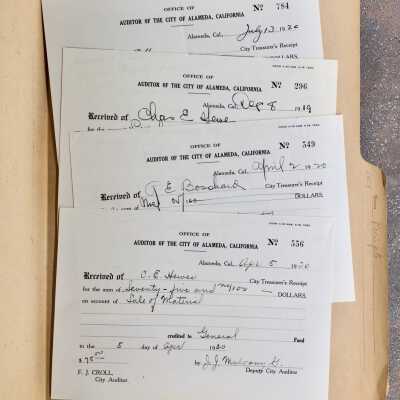 OFFICE OF
AUDITOR OF THE CITY OF ALAMEDA, CALIFORNIA
Nº 784
Alameda, Cal., July 13 1920
City Treasurer's Receipt
DOLLARS.
OFFICE OF
AUDITOR OF THE CITY OF ALAMEDA, CALIFORNIA
Nº 296
Alameda, Cal., Dec 8 1919
City Treasurer's Receipt
Received of Chas E. Hewes
for the
OFFICE OF
AUDITOR OF THE CITY OF ALAMEDA, CALIFORNIA
Nº 549
Alameda, Cal., April 2 1920
City Treasurer's Receipt
Received of E Boschard
DOLLARS.
OFFICE OF
AUDITOR OF THE CITY OF ALAMEDA, CALIFORNIA
Nº 556
Alameda, Cal., Apr 5 1920
City Treasurer's Receipt
Received of C. E. Hewes
for the sum of Seventy-five and no/100 DOLLARS.
on account of Sale of Material
credited to General Fund
to the 5 day of Apr 1920
$ 75.00
by J. J.
F. J. CROLL,
City Auditor.
Deputy City Auditor